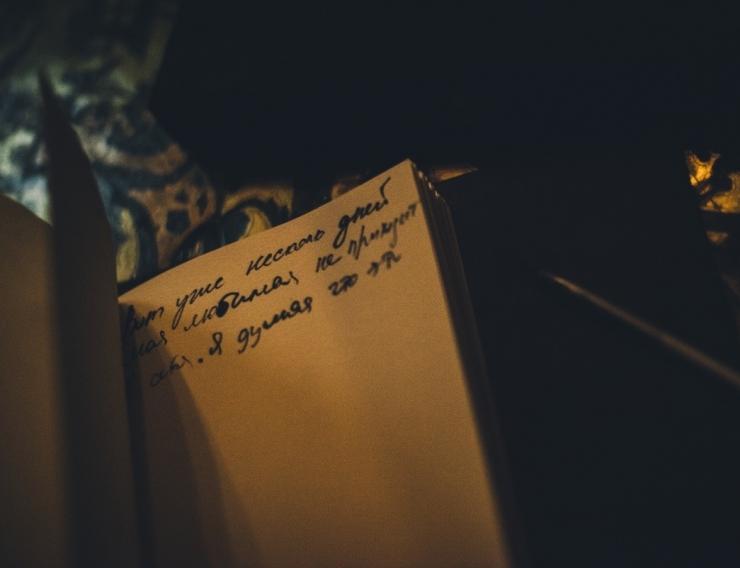 Вот уже несколь дней
моя любимая не приходит
. Я думал что это